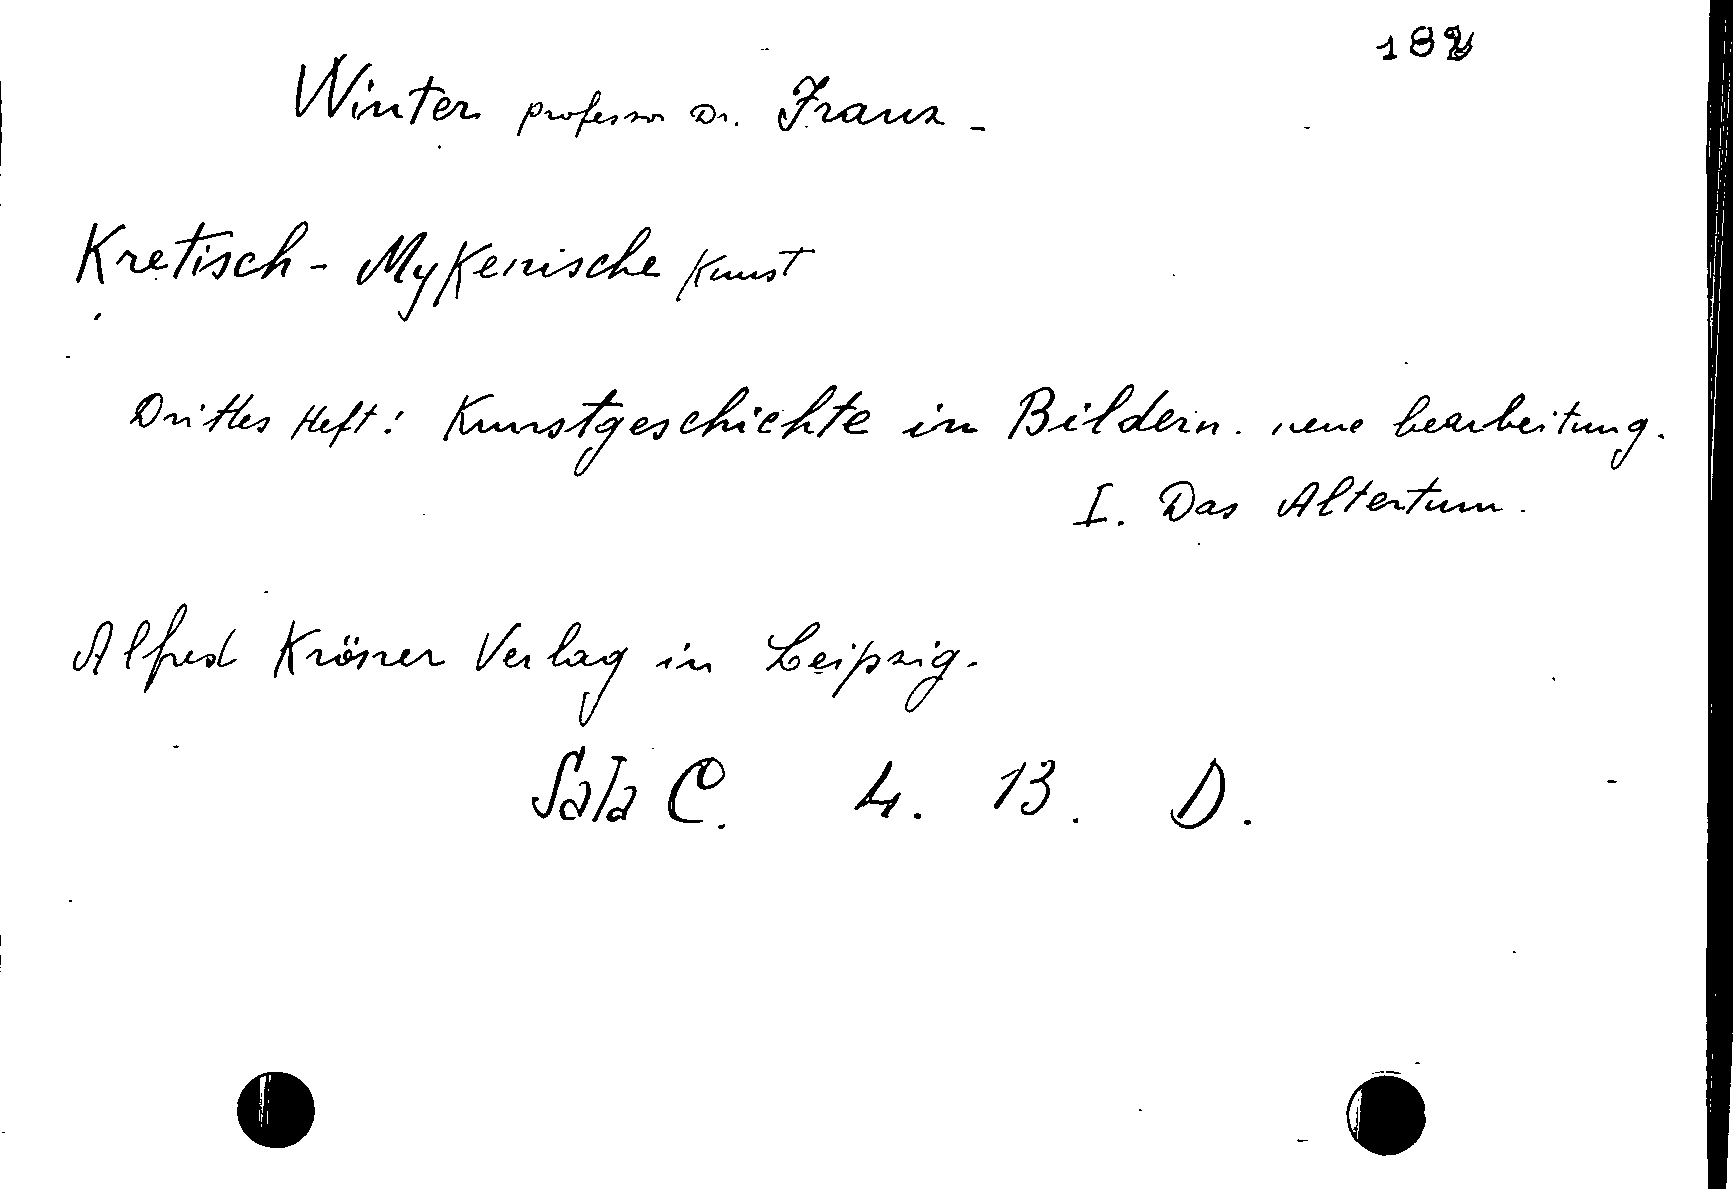 182
Winter professor Dr. Franz -
Kretisch - Mykenische Kunst
Drittes Heft: Kunstgeschichte in Bildern. neue bearbeitung.
I. Das Altertum.
Alfred Kröner Verlag in Leipzig.
Sala C. 4. 13. D.